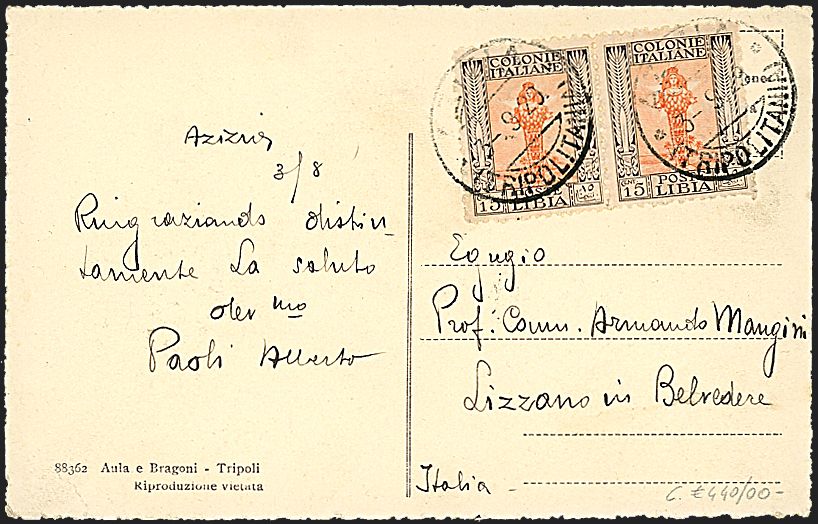 Azizia
3/8
Ringraziando distin-
tamente La saluto
dev mo
Paoli Alberto
88362 Aula e Bragoni - Tripoli
Riproduzione vietata
COLONIE
ITALIANE
15 POSTE
LIBIA
COLONIE
ITALIANE
CENT. 15 POSTE
LIBIA
TRIPOLITANIA
TRIPOLITANIA
Egregio
Prof. Comm. Armando Mangini
Lizzano in Belvedere
Italia -
C. € 440/00-